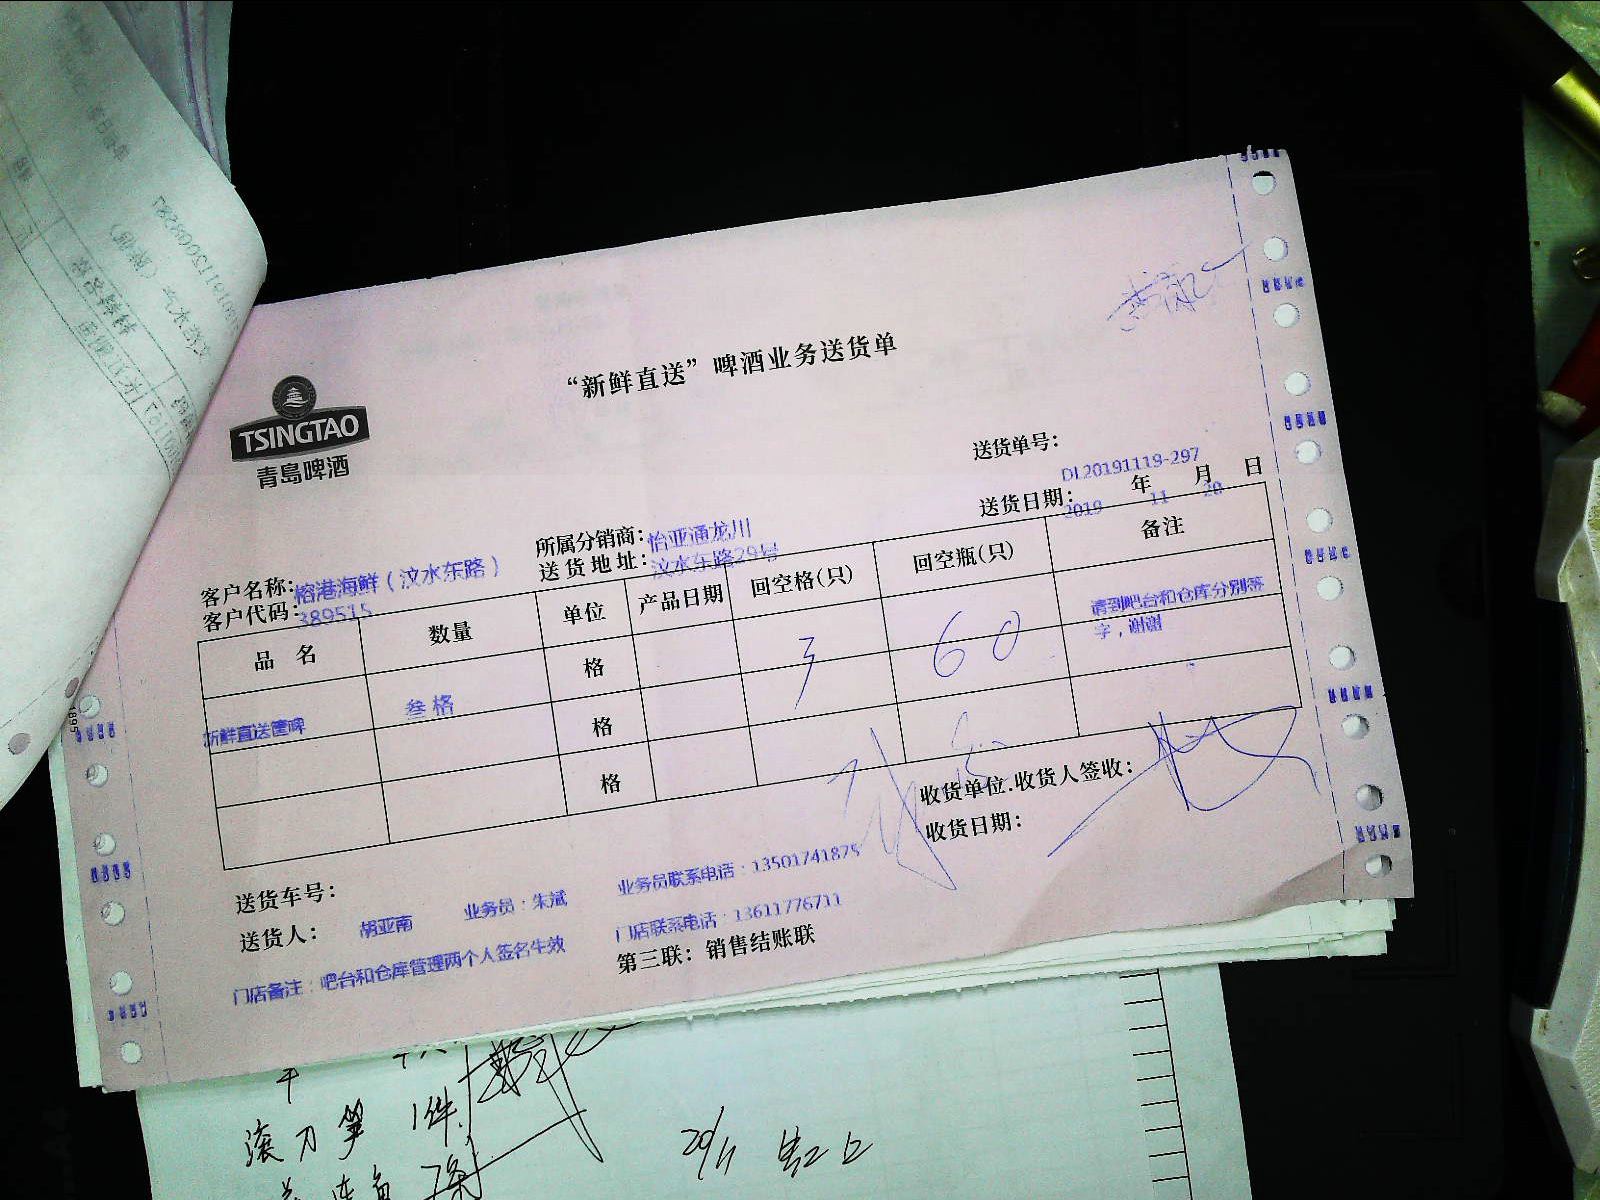 “新鲜直送”啤酒业务送货单
TSINGTAO
青岛啤酒
送货单号：
DL20191119-297
送货日期： 2019 年 11 月 20 日
所属分销商：怡亚通龙川
客户名称：榕港海鲜（汶水东路）
送货地址：汶水东路29号
客户代码：389515
品 名 数量 单位 产品日期 回空格(只) 回空瓶(只) 备注
新鲜直送筐啤 叁格 格 3 60 请到吧台和仓库分别签
字，谢谢
格
格
收货单位.收货人签收：
收货日期：
送货车号：
业务员联系电话：13501741875
送货人： 胡亚南 业务员：朱斌
门店联系电话：13611776711
门店备注：吧台和仓库管理两个人签名生效
第三联：销售结账联
滚刀笋 1件
20/11